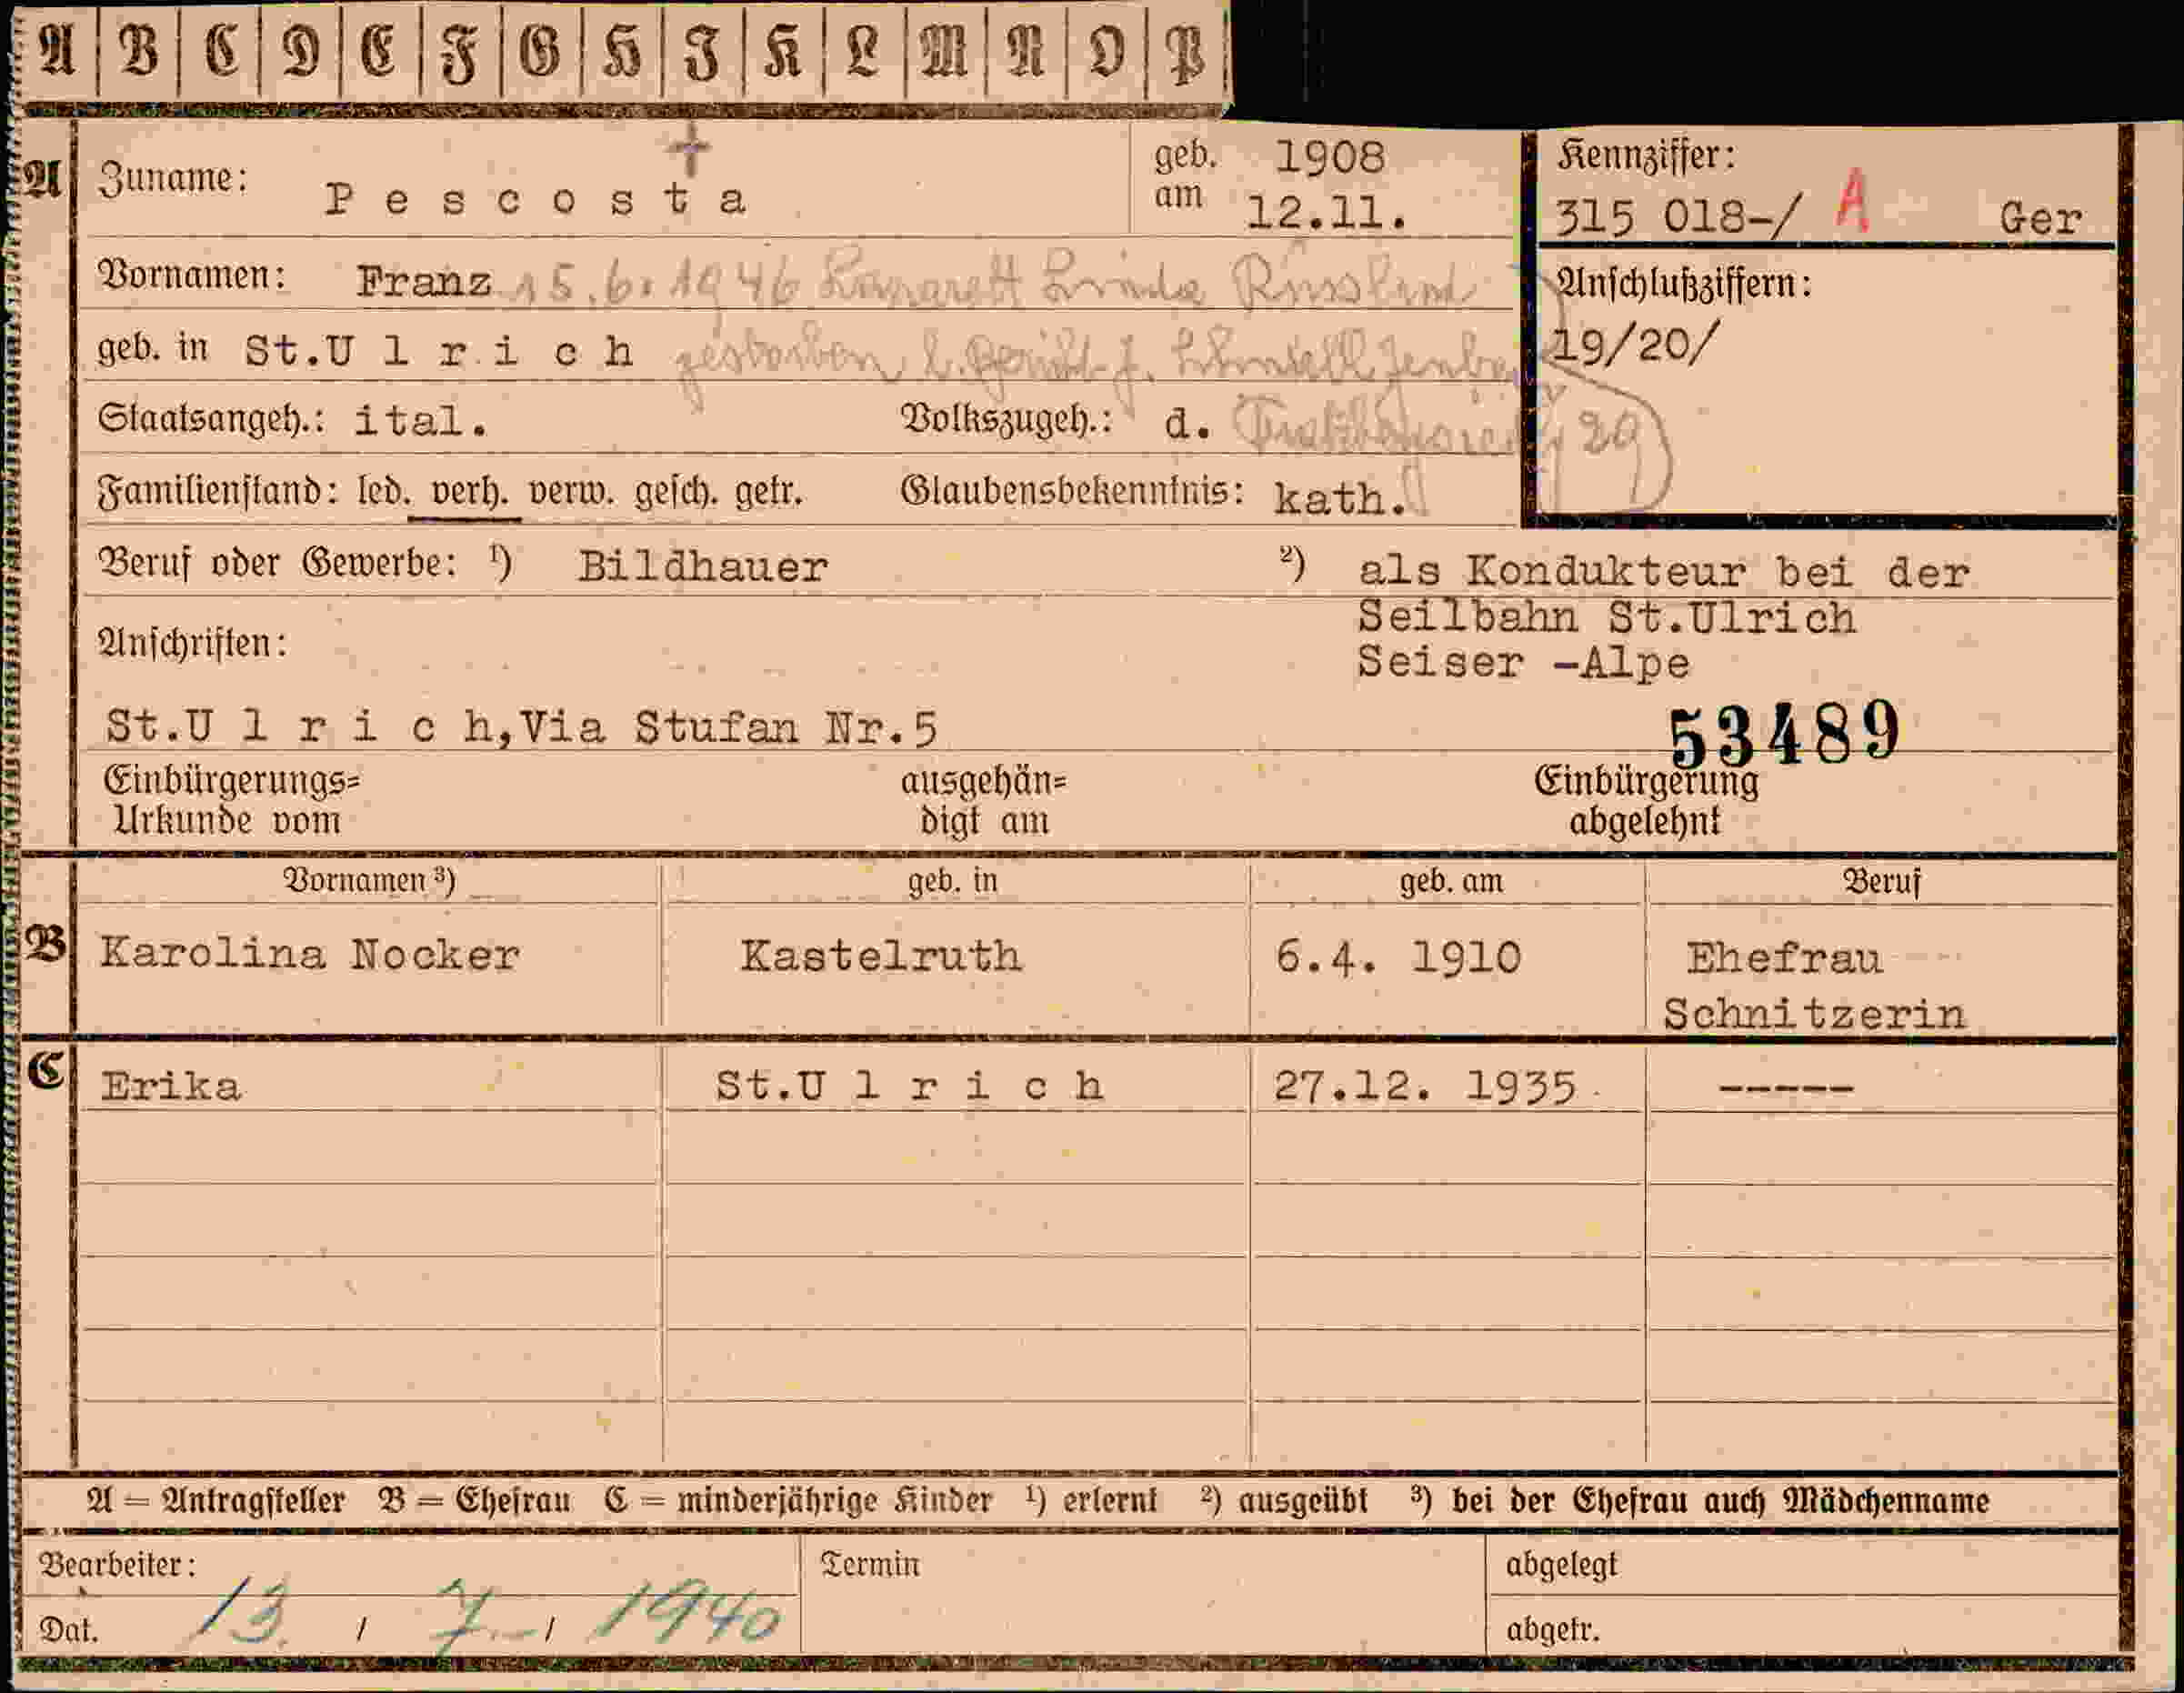 A B C D E F G H I K L M N O P
A Zuname: Pescosta + geb. am 1908 12.11.
Kennziffer: 315 018-/ A Ger
Vornamen: Franz 15.6.1946 Lazarett Russland
Anschlußziffern:
geb. in St.Ulrich gestorben
19/20/
Staatsangeh.: ital. Volkszugeh.: d. 29
Familienstand: led. verh. verw. gesch. getr. Glaubensbekenntnis: kath.
Beruf oder Gewerbe: 1) Bildhauer 2) als Kondukteur bei der
Seilbahn St.Ulrich
Anschriften:
Seiser -Alpe
St.Ulrich, Via Stufan Nr.5
53489
Einbürgerungs= ausgehän= Einbürgerung
Urkunde vom digt am abgelehnt
Vornamen 3) geb. in geb. am Beruf
B Karolina Nocker Kastelruth 6.4. 1910 Ehefrau
Schnitzerin
C Erika St.Ulrich 27.12. 1935 -----
A = Antragsteller B = Ehefrau C = minderjährige Kinder 1) erlernt 2) ausgeübt 3) bei der Ehefrau auch Mädchenname
Bearbeiter: Termin abgelegt
Dat. 13. / 7. / 1940 abgetr.